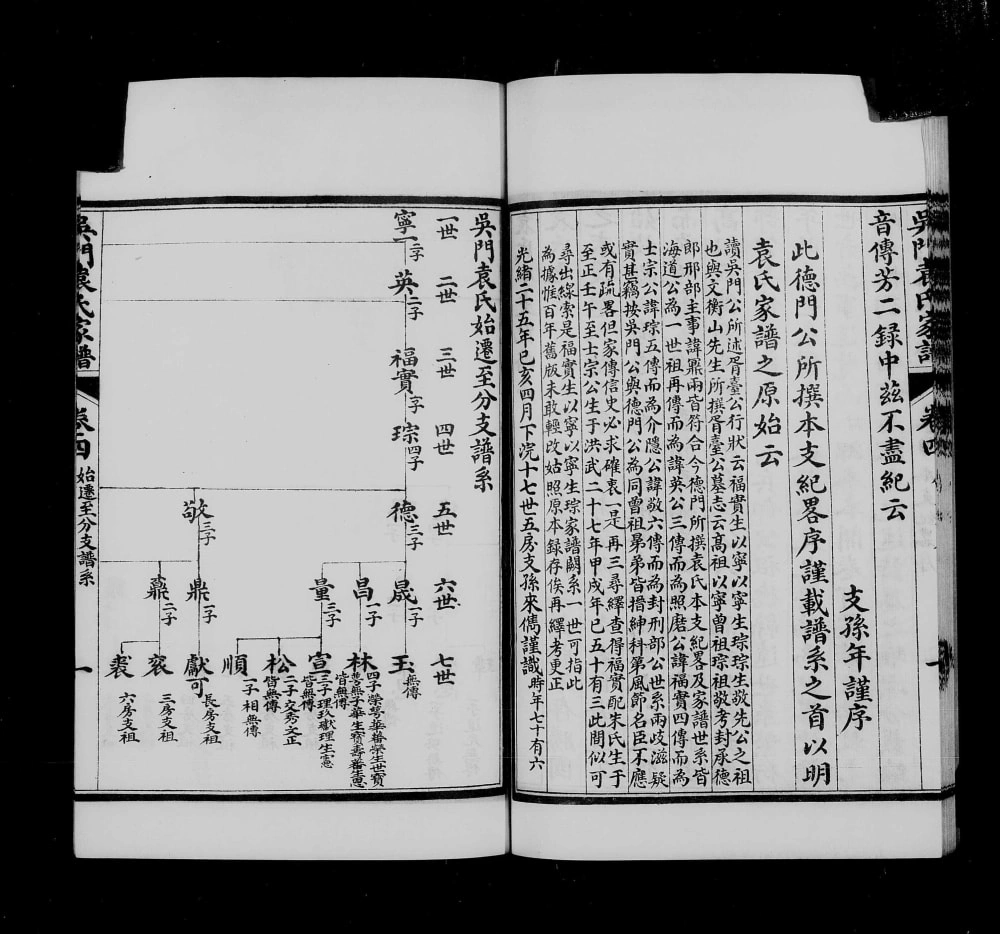 吳門袁氏家譜
卷四
一
音傳芳二録中茲不盡紀云
支孫年謹序
此德門公所撰本支紀畧序謹載譜系之首以明
袁氏家譜之原始云
讀吳門公所述胥臺公行狀云福實生以寧以寧生琮琮生敬先公之祖
也與文衡山先生所撰胥臺公墓志云髙祖以寧曾祖琮祖敬考封承德
郎刑部主事諱鼏兩皆符合今德門所撰袁氏本支紀畧及家譜世系皆
海道公為一世祖再傳而為諱英公三傳而為照磨公諱福實四傳而為
士宗公諱琮五傳而為介隱公諱敬六傳而為封刑部公世系兩歧滋疑
實甚竊按吳門公與德門公為同曾祖晜弟皆搢紳科第風節名臣不應
或有疏畧但家傳信史必求確衷一是再三尋繹查得福實配朱氏生于
至正壬午至士宗公生于洪武二十七年甲戌年已五十有三此間似可
尋出線索是福實生以寧以寧生琮家譜闕系一世可指此
為據惟百年舊版未敢輕改姑照原本録存俟再繹考更正
光緒二十五年巳亥四月下浣十七世五房支孫來儁謹識時年七十有六
吳門袁氏始遷至分支譜系
一世 二世 三世 四世 五世 六世 七世
寧一子 英二子 福實一子 琮四子 德三子 晟一子 玉無傳
昌一子 林四子榮萼華蕃榮生世寶
萼無子華生寶壽蕃生惠
皆無傳
量三子 宣三子理玖獻理生憲
皆無傳
松二子交秀文正
皆無傳
順一子相無傳
敬三子 鼎一子 獻可長房支祖
鼒二子 衮三房支祖
裘六房支祖
吳門袁氏家譜
卷四
始遷至分支譜系
一